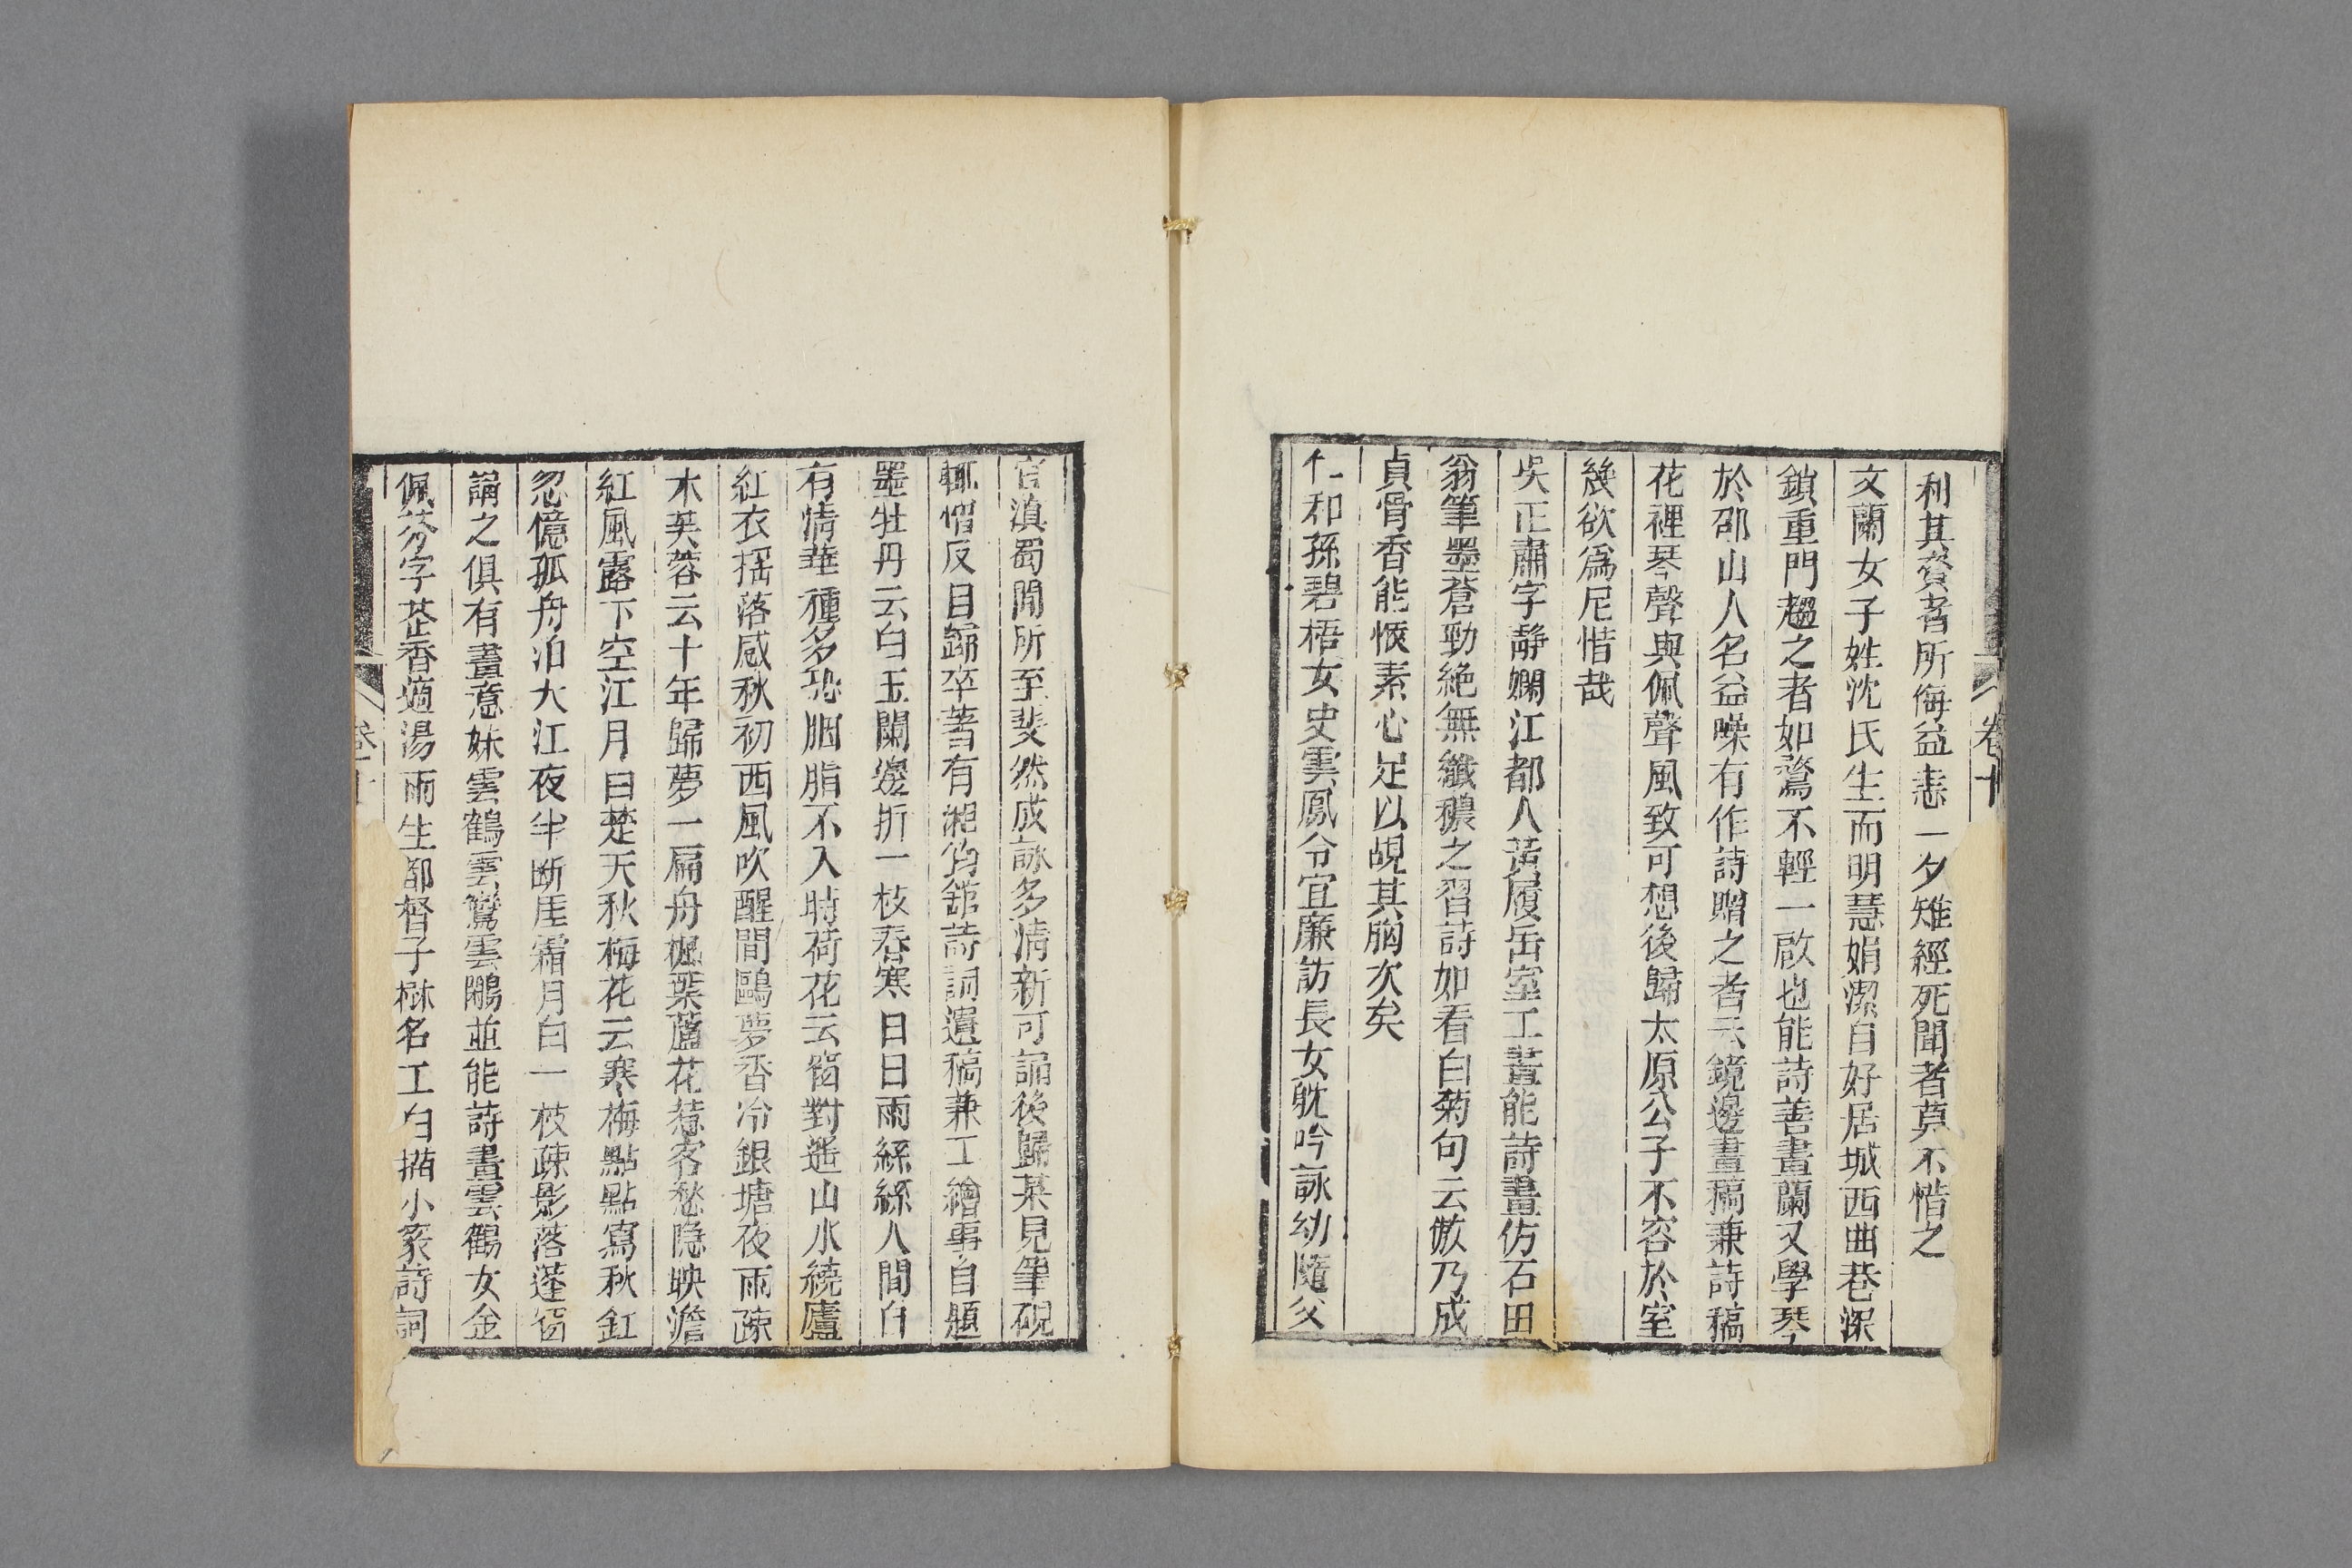 卷十
利其賓者所侮益恚一夕雉經死聞者莫不惜之
文蘭女子姓沈氏生而明慧娟潔自好居城西曲巷深
鎖重門趨之者如鶩不輕一啟也能詩善畫蘭又學琴
於邵山人名益噪有作詩贈之者云鏡邊畫稿兼詩稿
花裡琴聲與佩聲風致可想後歸太原公子不容於室
幾欲為尼惜哉
吳正肅字靜嫻江都人黃履岳室工畫能詩畫仿石田
翁筆墨蒼勁絕無纖穠之習詩如看白菊句云傲乃成
貞骨香能愜素心足以覘其胸次矣
仁和孫碧梧女史雲鳳令宜廉訪長女躭吟詠幼隨父
官滇蜀間所至斐然成詠多清新可誦後歸某見筆硯
輒憎反目歸卒著有湘筠館詩詞遺稿兼工繪事自題
墨牡丹云白玉闌邊折一枝春寒日日雨絲絲人間自
有情華種多恐胭脂不入時荷花云窗對遙山水繞廬
紅衣搖落感秋初西風吹醒間鷗夢香冷銀塘夜雨疎
木芙蓉云十年歸夢一扁舟楓葉蘆花惹客愁隱映澹
紅風露下空江月白楚天秋梅花云寒梅點點寫秋釭
忽憶孤舟泊大江夜半斷厓霜月白一枝疎影落蓬窗
誦之俱有畫意妹雲鶴雲鸞雲鵰並能詩畫雲鶴女金
佩芬字芷香適湯雨生都督子楙名工白描小篆詩詞
卷十